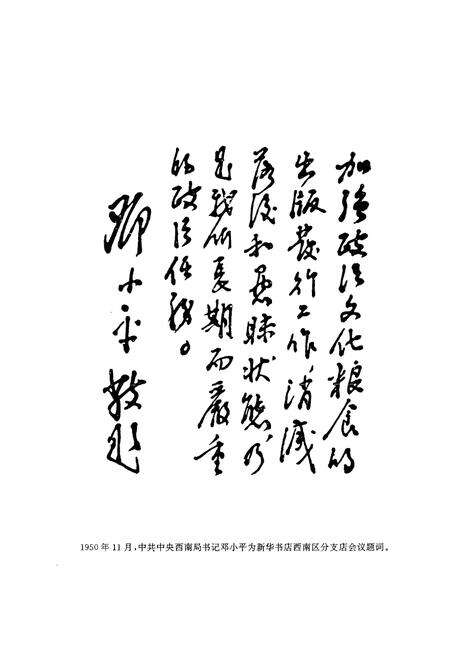 加强政治文化粮食的
出版發行工作，消滅
落後和愚昧状態，乃
是我们長期而嚴重
的政治任務。
鄧小平敬題
1950年11月，中共中央西南局书记邓小平为新华书店西南区分支店会议题词。